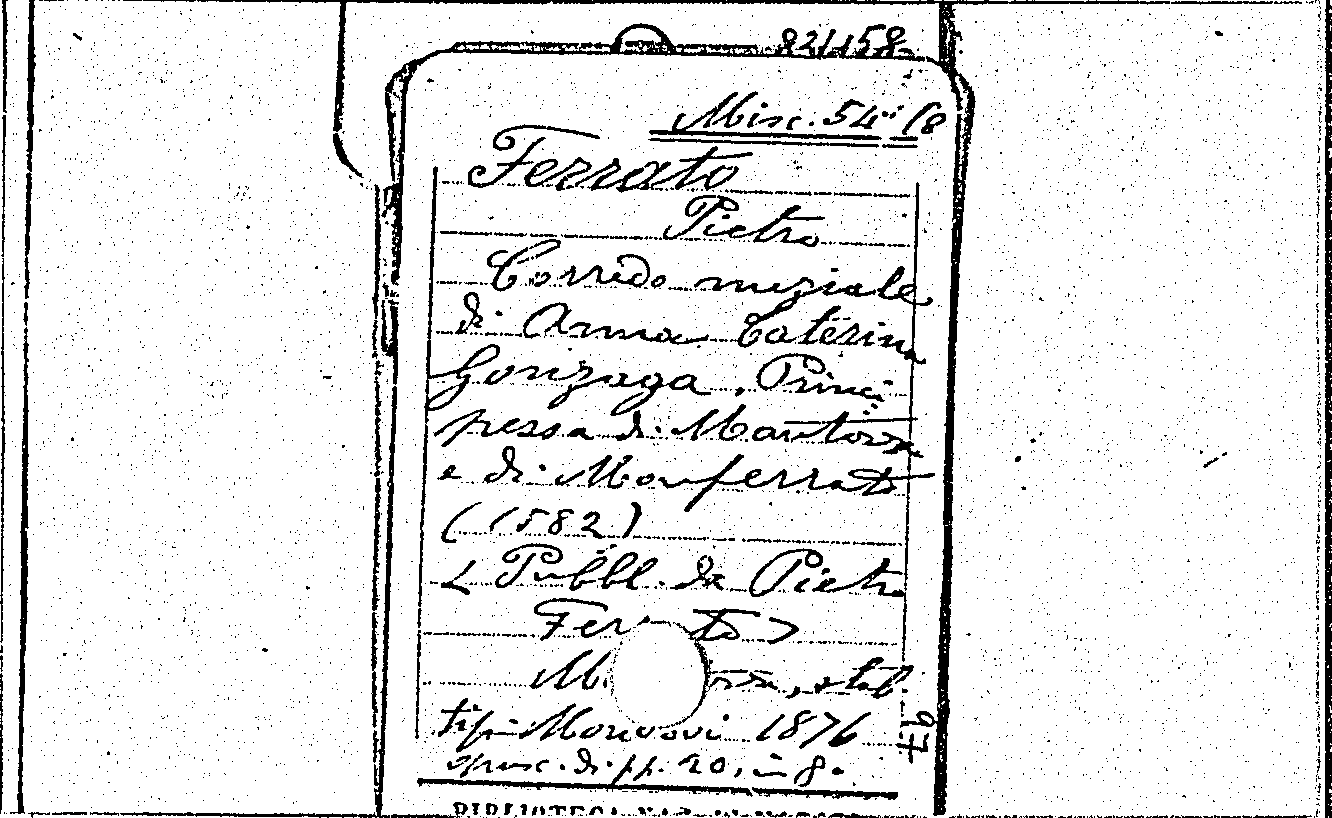 821158
Misc. 54
Ferrato
Pietro
Corredo nuziale
di Anna Caterina
Gonzaga, Princi
pessa di Mantova
e di Monferrato
(1582)
< Pubbl. da Pietro
Ferrato >
Mantova, stab.
tip. Mondovi 1876
opusc. di pp. 20, in 8°
97